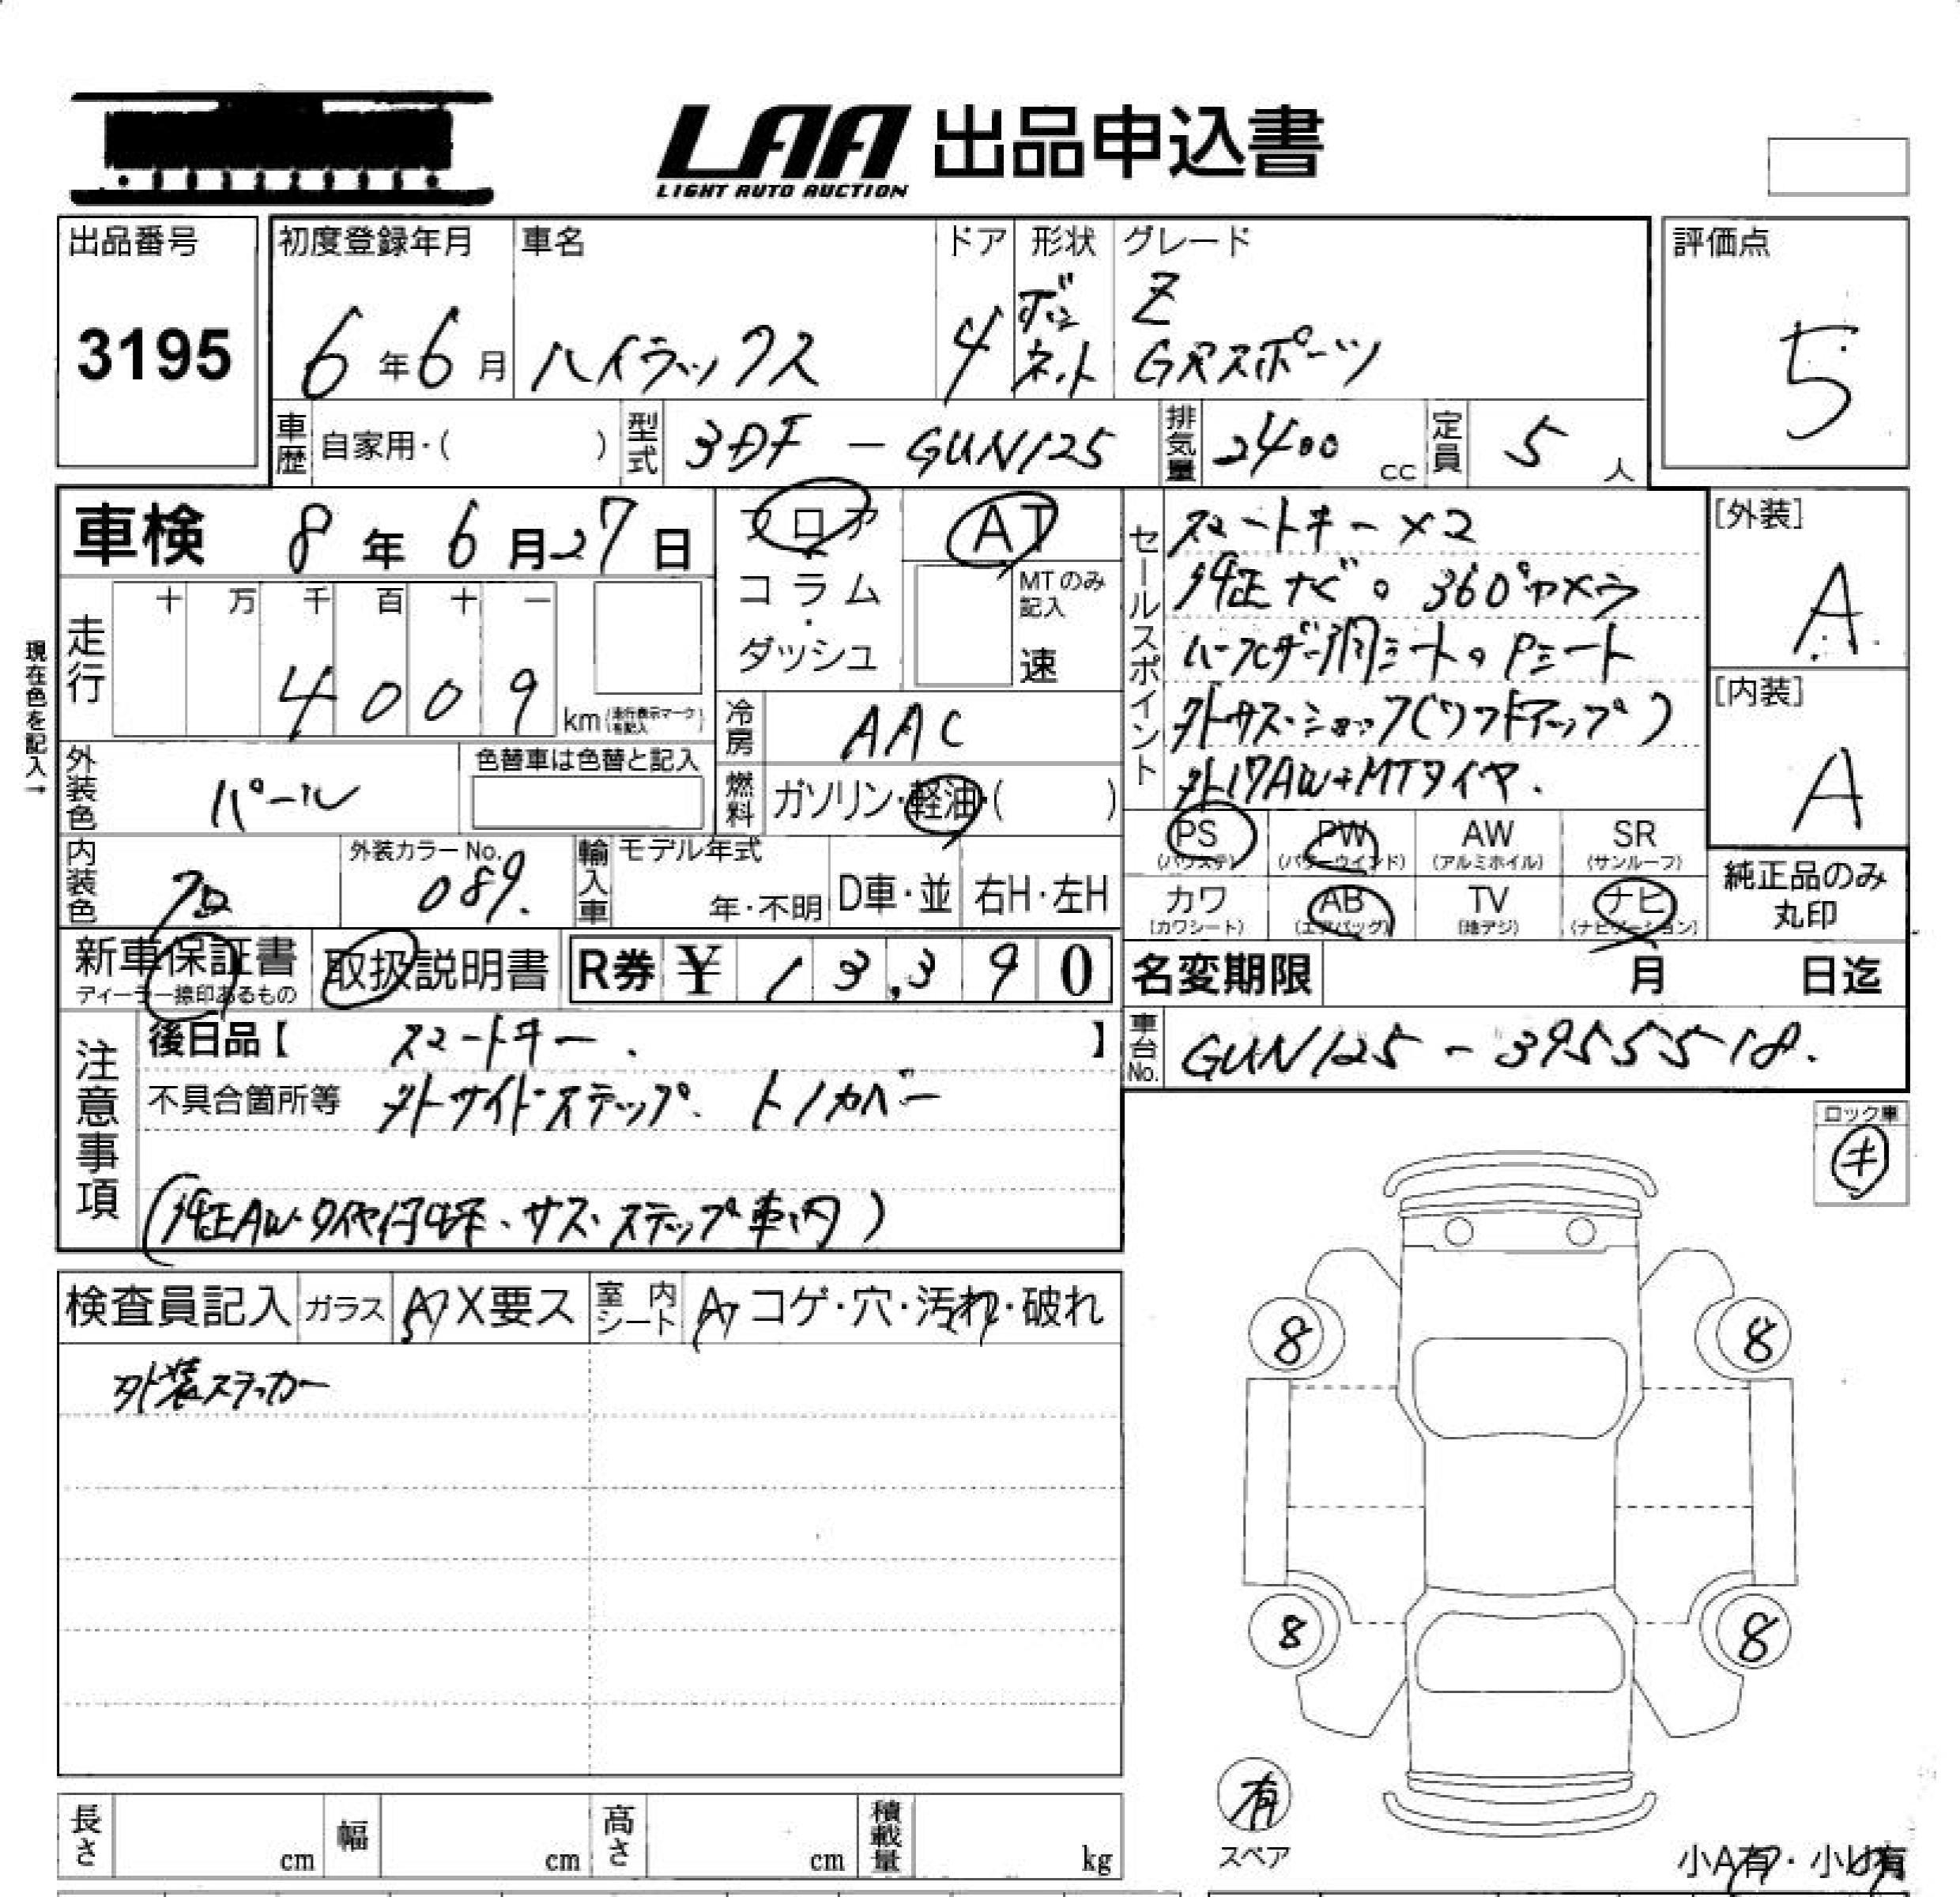 LAA 出品申込書
LIGHT AUTO AUCTION
出品番号
3195
初度登録年月
6年6月
車名
ハイラックス
ドア
4
形状
ボンネット
グレード
Z
GRスポーツ
評価点
5
車歴 自家用・( )
型式 3DF - GUN125
排気量 2400 cc
定員 5 人
車検 8年6月27日
現在色を記入→
走行
十 万 千 百 十 一
4 0 0 9
km
外装色 パール
色替車は色替と記入
内装色 クロ
外装カラーNo. 089.
輸入車 モデル年式
年・不明 D車・並 右H・左H
フロア
コラム・
ダッシュ
AT
MTのみ
記入
速
冷房 AAC
燃料 ガソリン・軽油・( )
セールスポイント
スマートキー×2
純正ナビ。360°カメラ
ハーフレザー調シート。Pシート
外サス・ショック(リフトアップ)
外17AW+MTタイヤ.
PS (パワステ)
PW (パワーウインド)
AW (アルミホイル)
SR (サンルーフ)
カワ (カワシート)
AB (エアバッグ)
TV (地デジ)
ナビ (ナビゲーション)
[外装]
A
[内装]
A
純正品のみ
丸印
新車保証書
ディーラー捺印あるもの
取扱説明書
R券 ¥ 13,390
名変期限 月 日迄
車台No. GUN125-3955518.
注意事項
後日品【 スマートキー. 】
不具合箇所等 外サイドステップ. トノカバー
(純正AW・タイヤ付属、サス・ステップ車内)
ロック車
キ
検査員記入 ガラス A X要ス
室内シート A・コゲ・穴・汚れ・破れ
外装ステッカー
8
8
8
8
有
スペア
小A有・小U有
長さ cm
幅 cm
高さ cm
積載量 kg